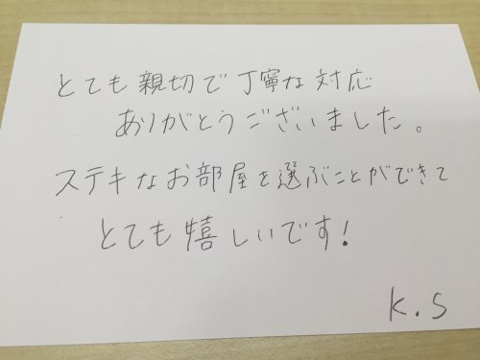 とても親切で丁寧な対応
ありがとうございました。
ステキなお部屋を選ぶことができて
とても嬉しいです!
K.S